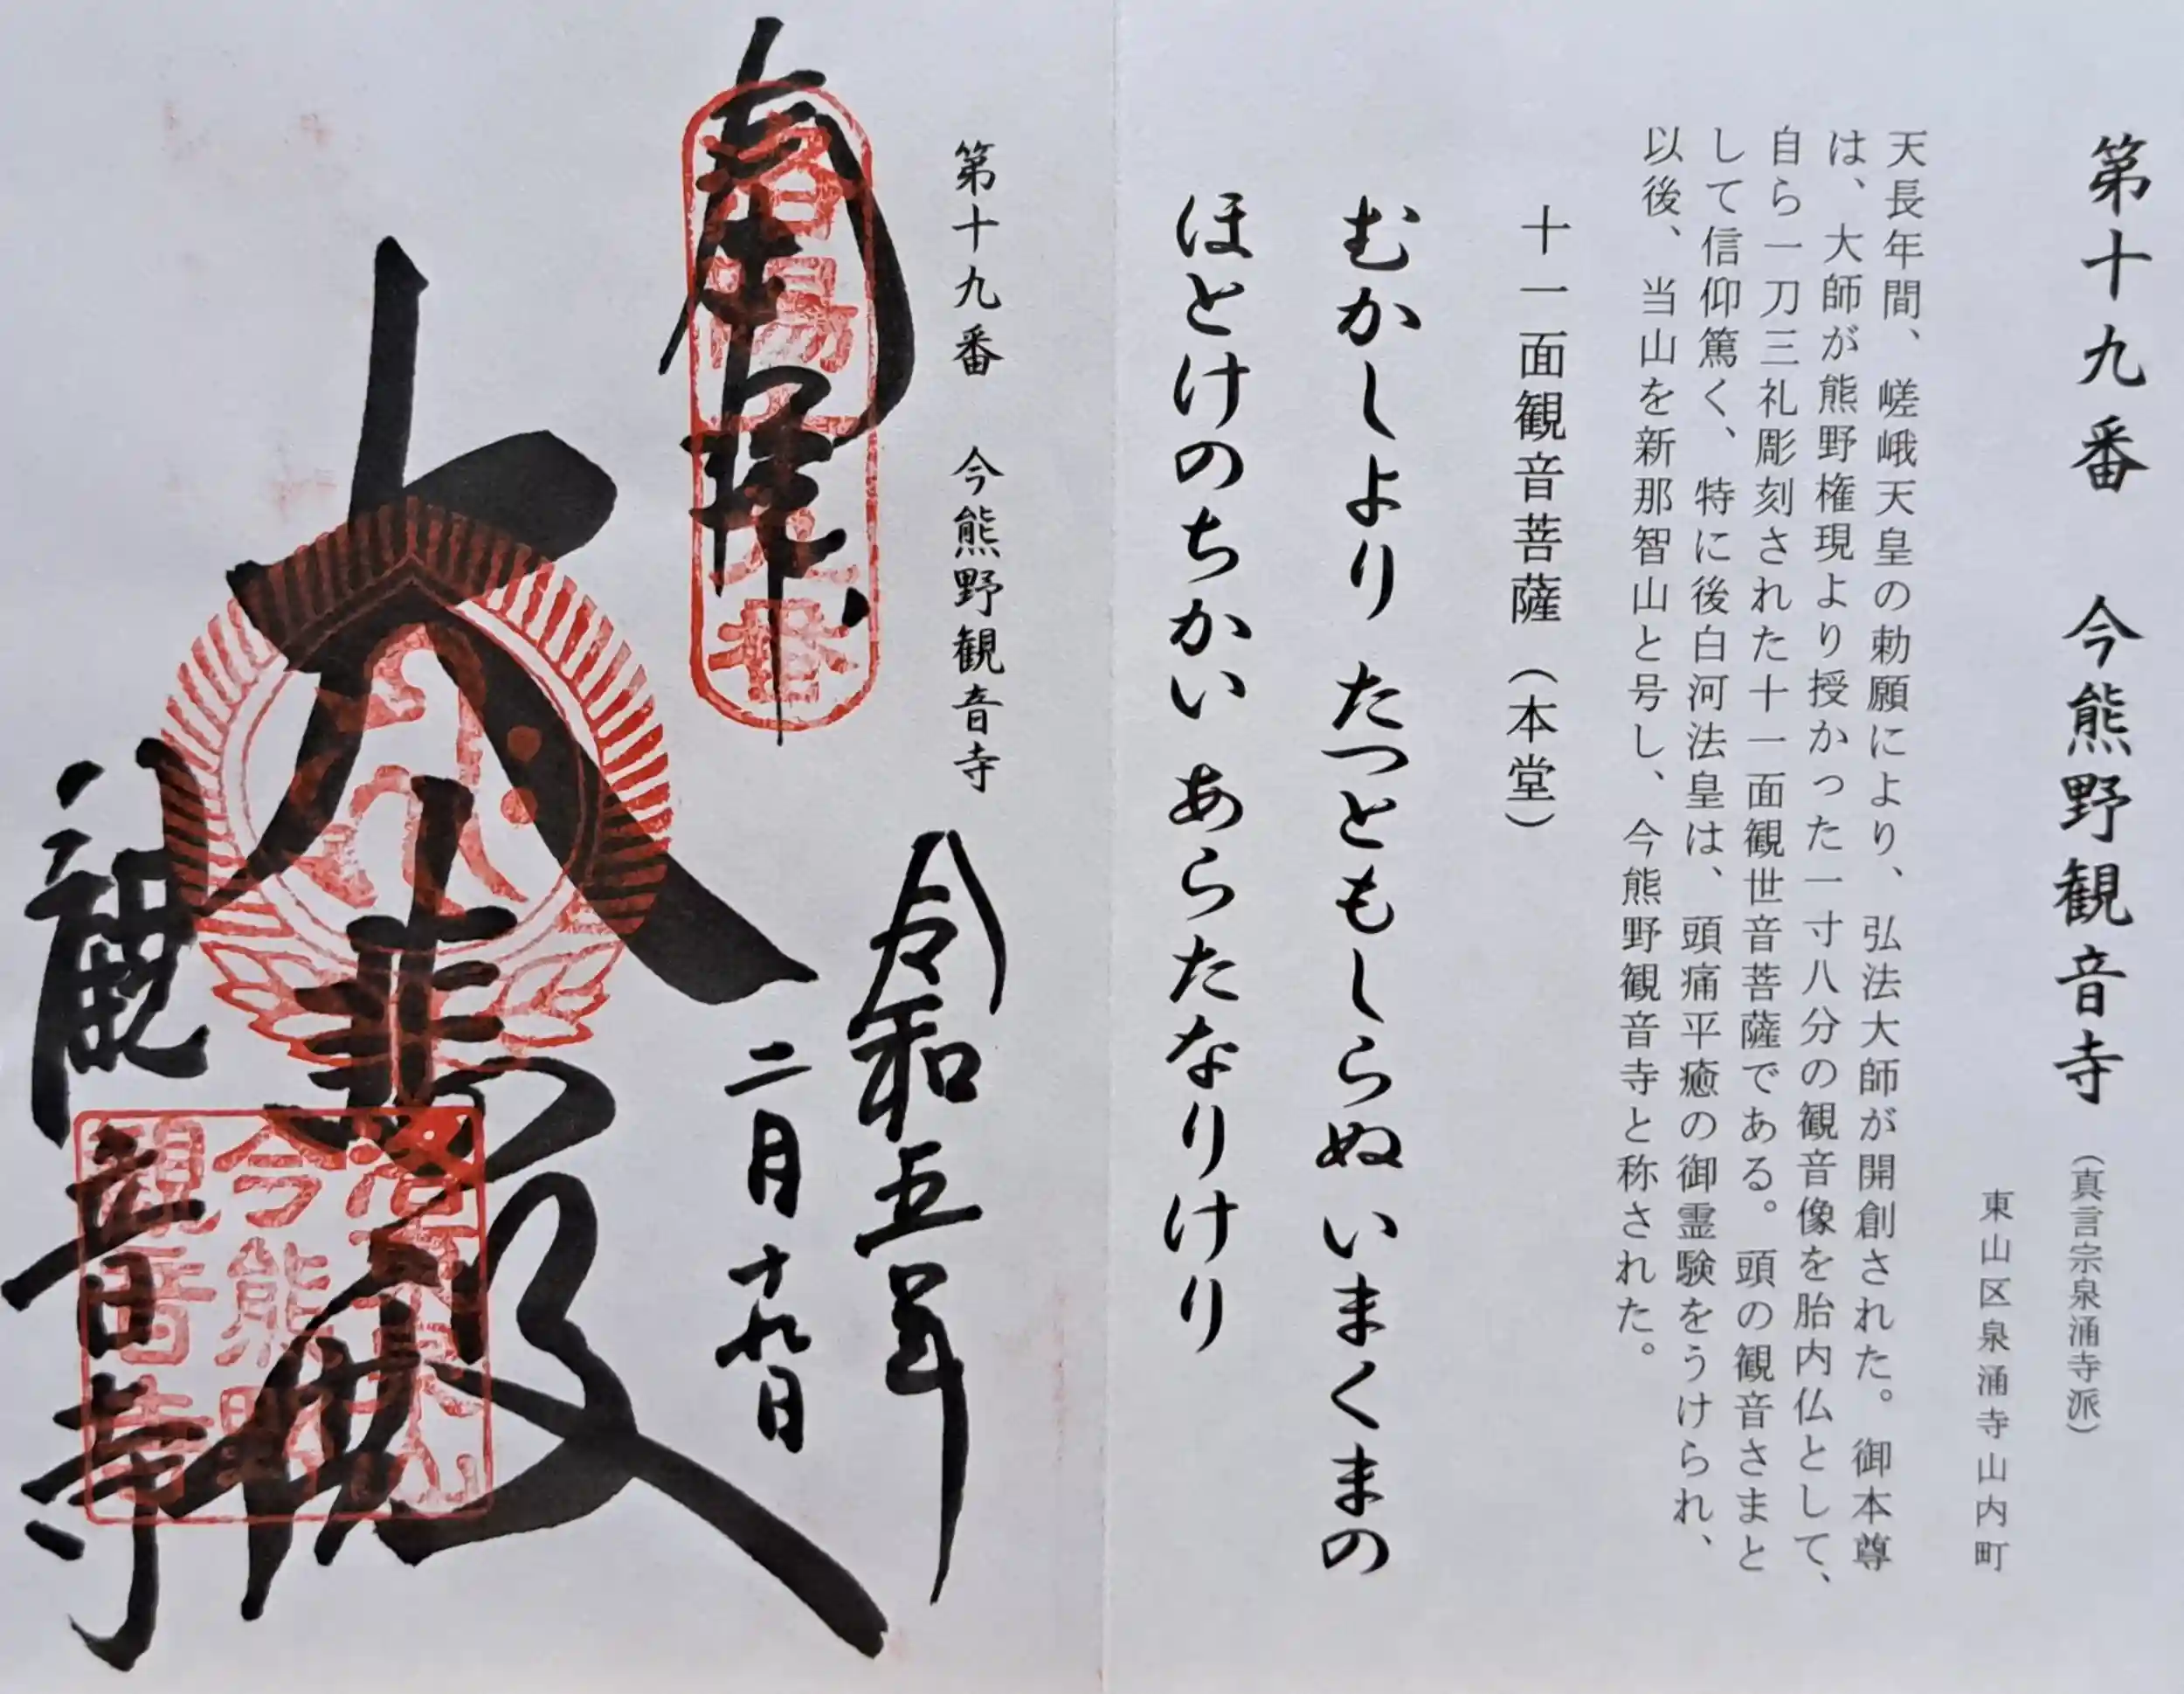 第十九番 今熊野観音寺(真言宗泉涌寺派)
東山区泉涌寺山内町
天長年間、嵯峨天皇の勅願により、弘法大師が開創された。御本尊
は、大師が熊野権現より授かった一寸八分の観音像を胎内仏として、
自ら一刀三礼彫刻された十一面観世音菩薩である。頭の観音さまと
して信仰篤く、特に後白河法皇は、頭痛平癒の御霊験をうけられ、
以後、当山を新那智山と号し、今熊野観音寺と称された。
十一面観音菩薩(本堂)
むかしより たつともしらぬ いまくまの
ほとけのちかい あらたなりけり
第十九番 今熊野観音寺
奉拝
洛陽十九番
令和五年
二月十九日
大悲殿
観音寺
今熊野
観音寺